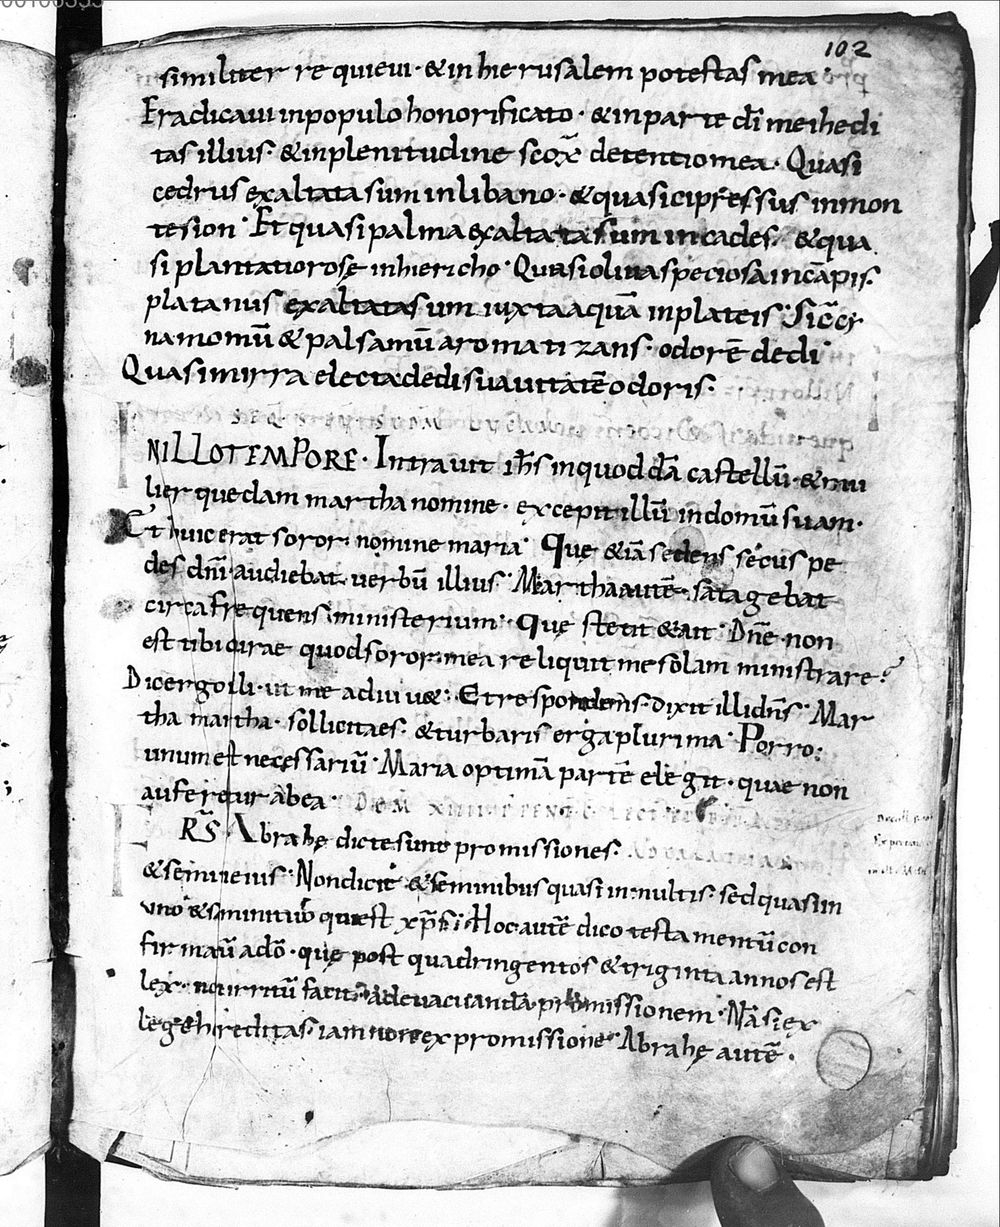 102
similiter re quieui · & in hierusalem potestas mea
Eradicaui in populo honorificato · & in parte dī mei hedi
tas illius · & in plenitudine scōꝝ detentio mea · Quasi
cedrus exaltata sum in libano · & quasi cipressus in mon
te sion · Et quasi palma exaltata sum in cades · & qua
si plantatio rosę in hiericho · Quasi oliua speciosa in cāpis ·
platanus exaltata sum iuxta aquā in plateis · Sic̄ ci
namomū & palsamū aromatizans · odorē dedi
Quasi mirra electa dedi suauitatē odoris ·
IN ILLO TEMPORE · Intrauit ihs in quoddā castellū · & mu
lier quedam martha nomine · excepit illū in domū suam ·
Et huic erat soror nomine maria · Quę &iā sedens secus pe
des dn̄i · audiebat uerbū illius · Martha autē satagebat
circa frequens ministerium · Quę stetit & ait · Dn̄e · non
est tibi curae quod soror mea reliquit me solam ministrare ?
Dic ergo illi · ut me adiuu& · Et respondens dixit illi dn̄s · Mar
tha martha · sollicita es · & turbaris erga plurima · Porro
unum est necessariū · Maria optimā partē elegit · quae non
auferetur ab ea ·
FRS̄ Abrahę dicte sunt promissiones ·
& semini eius · Non dicit & seminibus quasi in multis · sed quasi in
uno & semini tuo qui est xp̄s · Hoc autē dico testamentū con
firmatū a dō · quę post quadringentos & triginta annos est
lex · non irritū facit ad euacuandā promissionem · Nā si ex
lege hereditas · iam non ex promissione · Abrahę autē ·